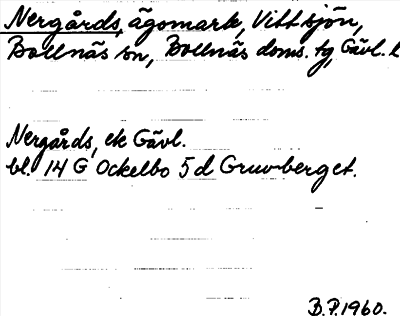 Nergårds, ägomark, Vittsjön,
Bollnäs sn, Bollnäs doms. tg, Gävl. l
Nergårds, ek Gävl.
bl. 14 G Ockelbo 5 d Gruvberget.
B.P. 1960.